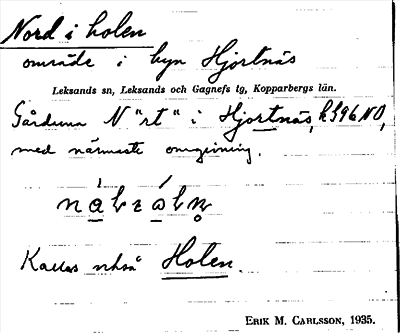 Nord i holen
område i byn Hjortnäs
Leksands sn, Leksands och Gagnefs tg, Kopparbergs län.
Gårdarna N "rt" i Hjortnäs, k 596 NO,
med närmaste omgivning.
Kallas också Holen.
ERIK M. CARLSSON, 1935.